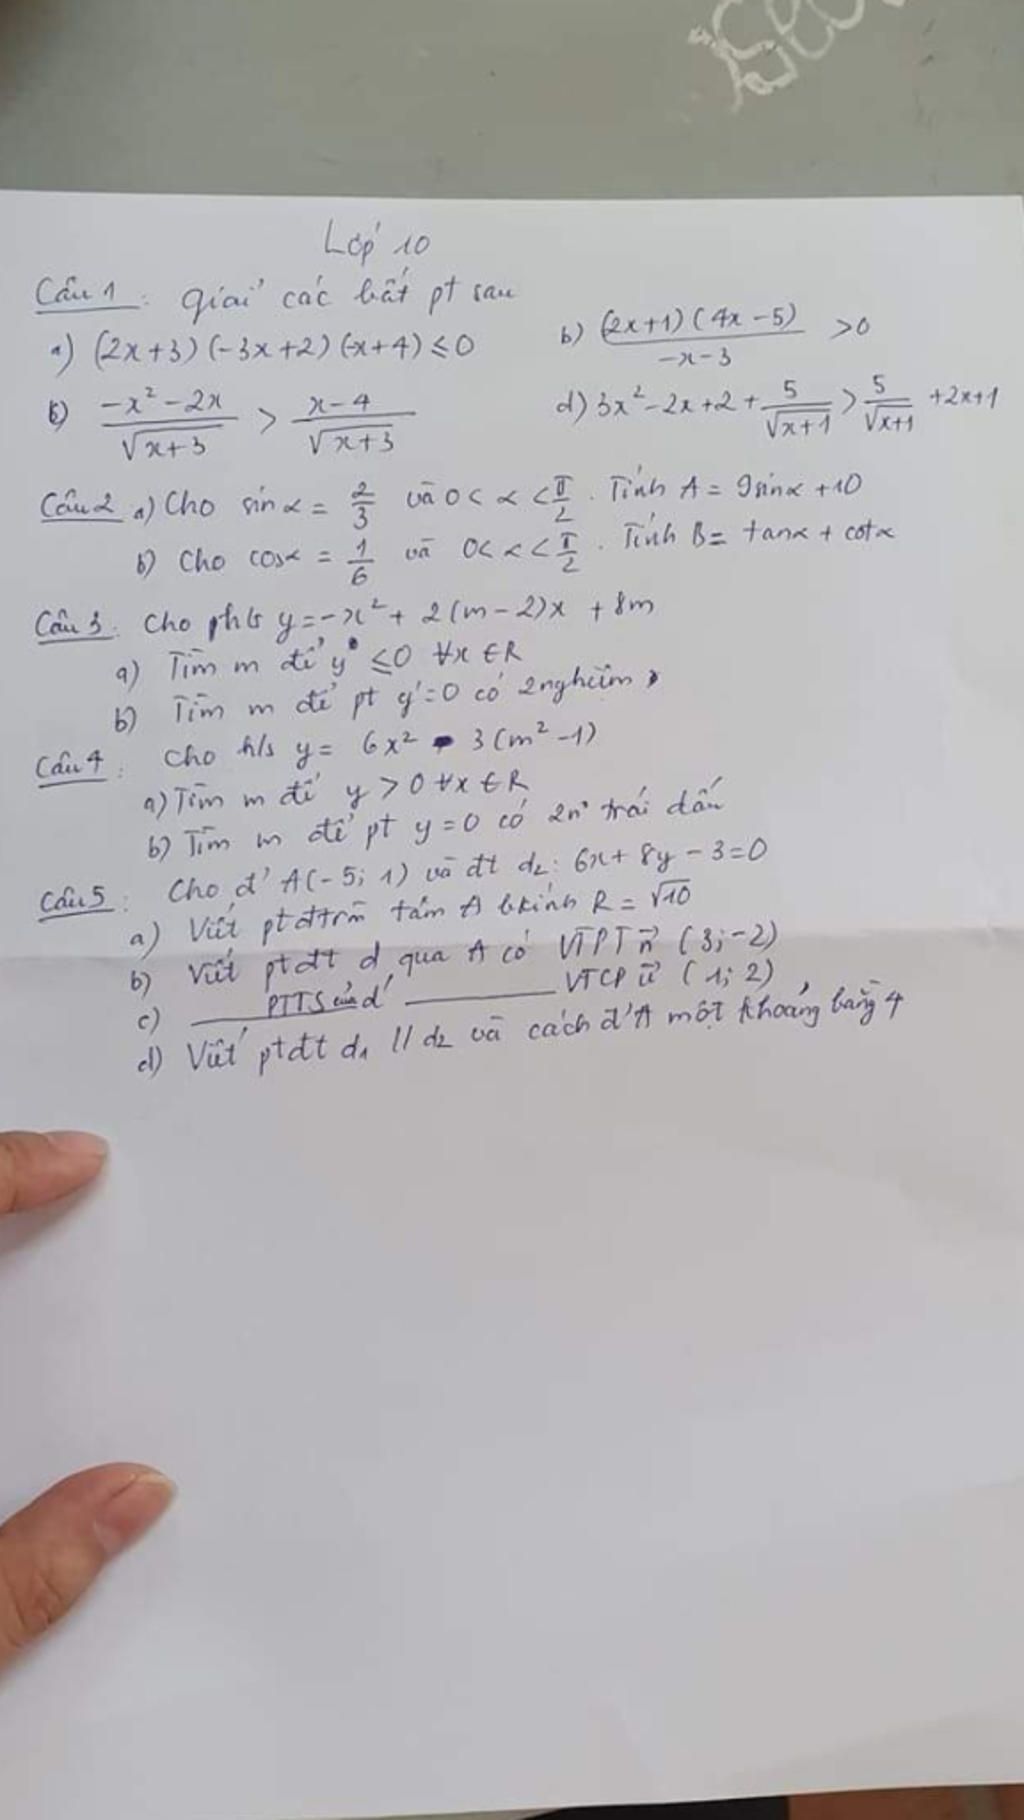 Lớp 10
Câu 1: giải các bất pt sau
a) (2x+3)(-3x+2)(-x+4) ≤ 0
b) (2x+1)(4x-5) / -x-3 > 0
c) -x² - 2x / √x+3 > x-4 / √x+3
d) 3x² - 2x + 2 + 5/√x+1 > 5/√x+1 + 2x+1
Câu 2 a) Cho sinα = 2/3 và 0 < α < π/2. Tính A = 9sinα + 10
b) Cho cosα = 1/6 và 0 < α < π/2. Tính B = tanα + cotα
Câu 3. Cho y = -x² + 2(m-2)x + 8m
a) Tìm m để y ≤ 0 ∀x ∈ R
b) Tìm m để pt y = 0 có 2 nghiệm
Câu 4: Cho h/s y = 6x² - 3(m²-1)
a) Tìm m để y > 0 ∀x ∈ R
b) Tìm m để pt y = 0 có 2n° trái dấu
Câu 5: Cho đ' A(-5; 1) và đt d₂: 6x + 8y - 3 = 0
a) Viết pt đtrn tâm A bkính R = √10
b) Viết ptđt d qua A có VTPT n⃗ (3; -2)
c) PTTS của d' VTCP u⃗ (1; 2)
d) Viết ptđt d₁ // d₂ và cách đ' A một khoảng bằng 4